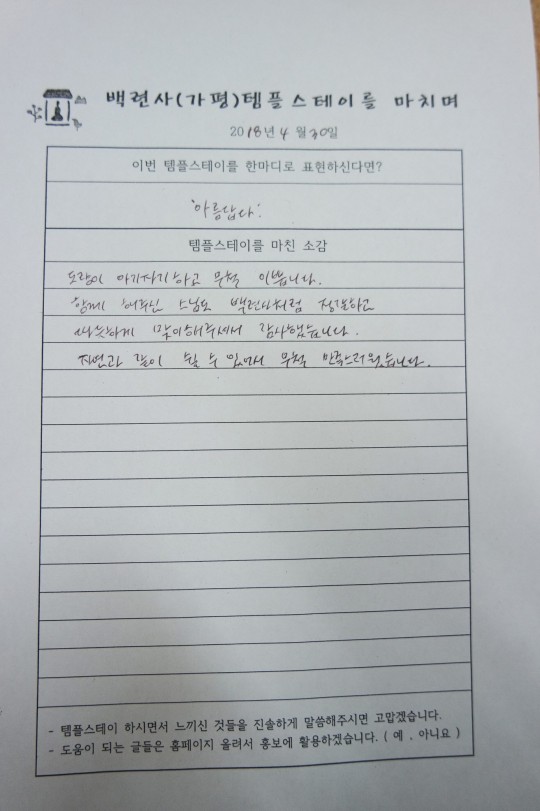 백련사(가평)템플스테이를 마치며
2018년 4월 30일
이번 템플스테이를 한마디로 표현하신다면?
'아름답다'.
템플스테이를 마친 소감
도량이 아기자기하고 무척 이쁩니다.
함께 해주신 스님도 백련사처럼 정갈하고
따뜻하게 맞이해주셔서 감사했습니다.
자연과 같이 쉴 수 있어서 무척 만족스러웠습니다.
- 템플스테이 하시면서 느끼신 것들을 진솔하게 말씀해주시면 고맙겠습니다.
- 도움이 되는 글들은 홈페이지 올려서 홍보에 활용하겠습니다. ( 예 . 아니요 )